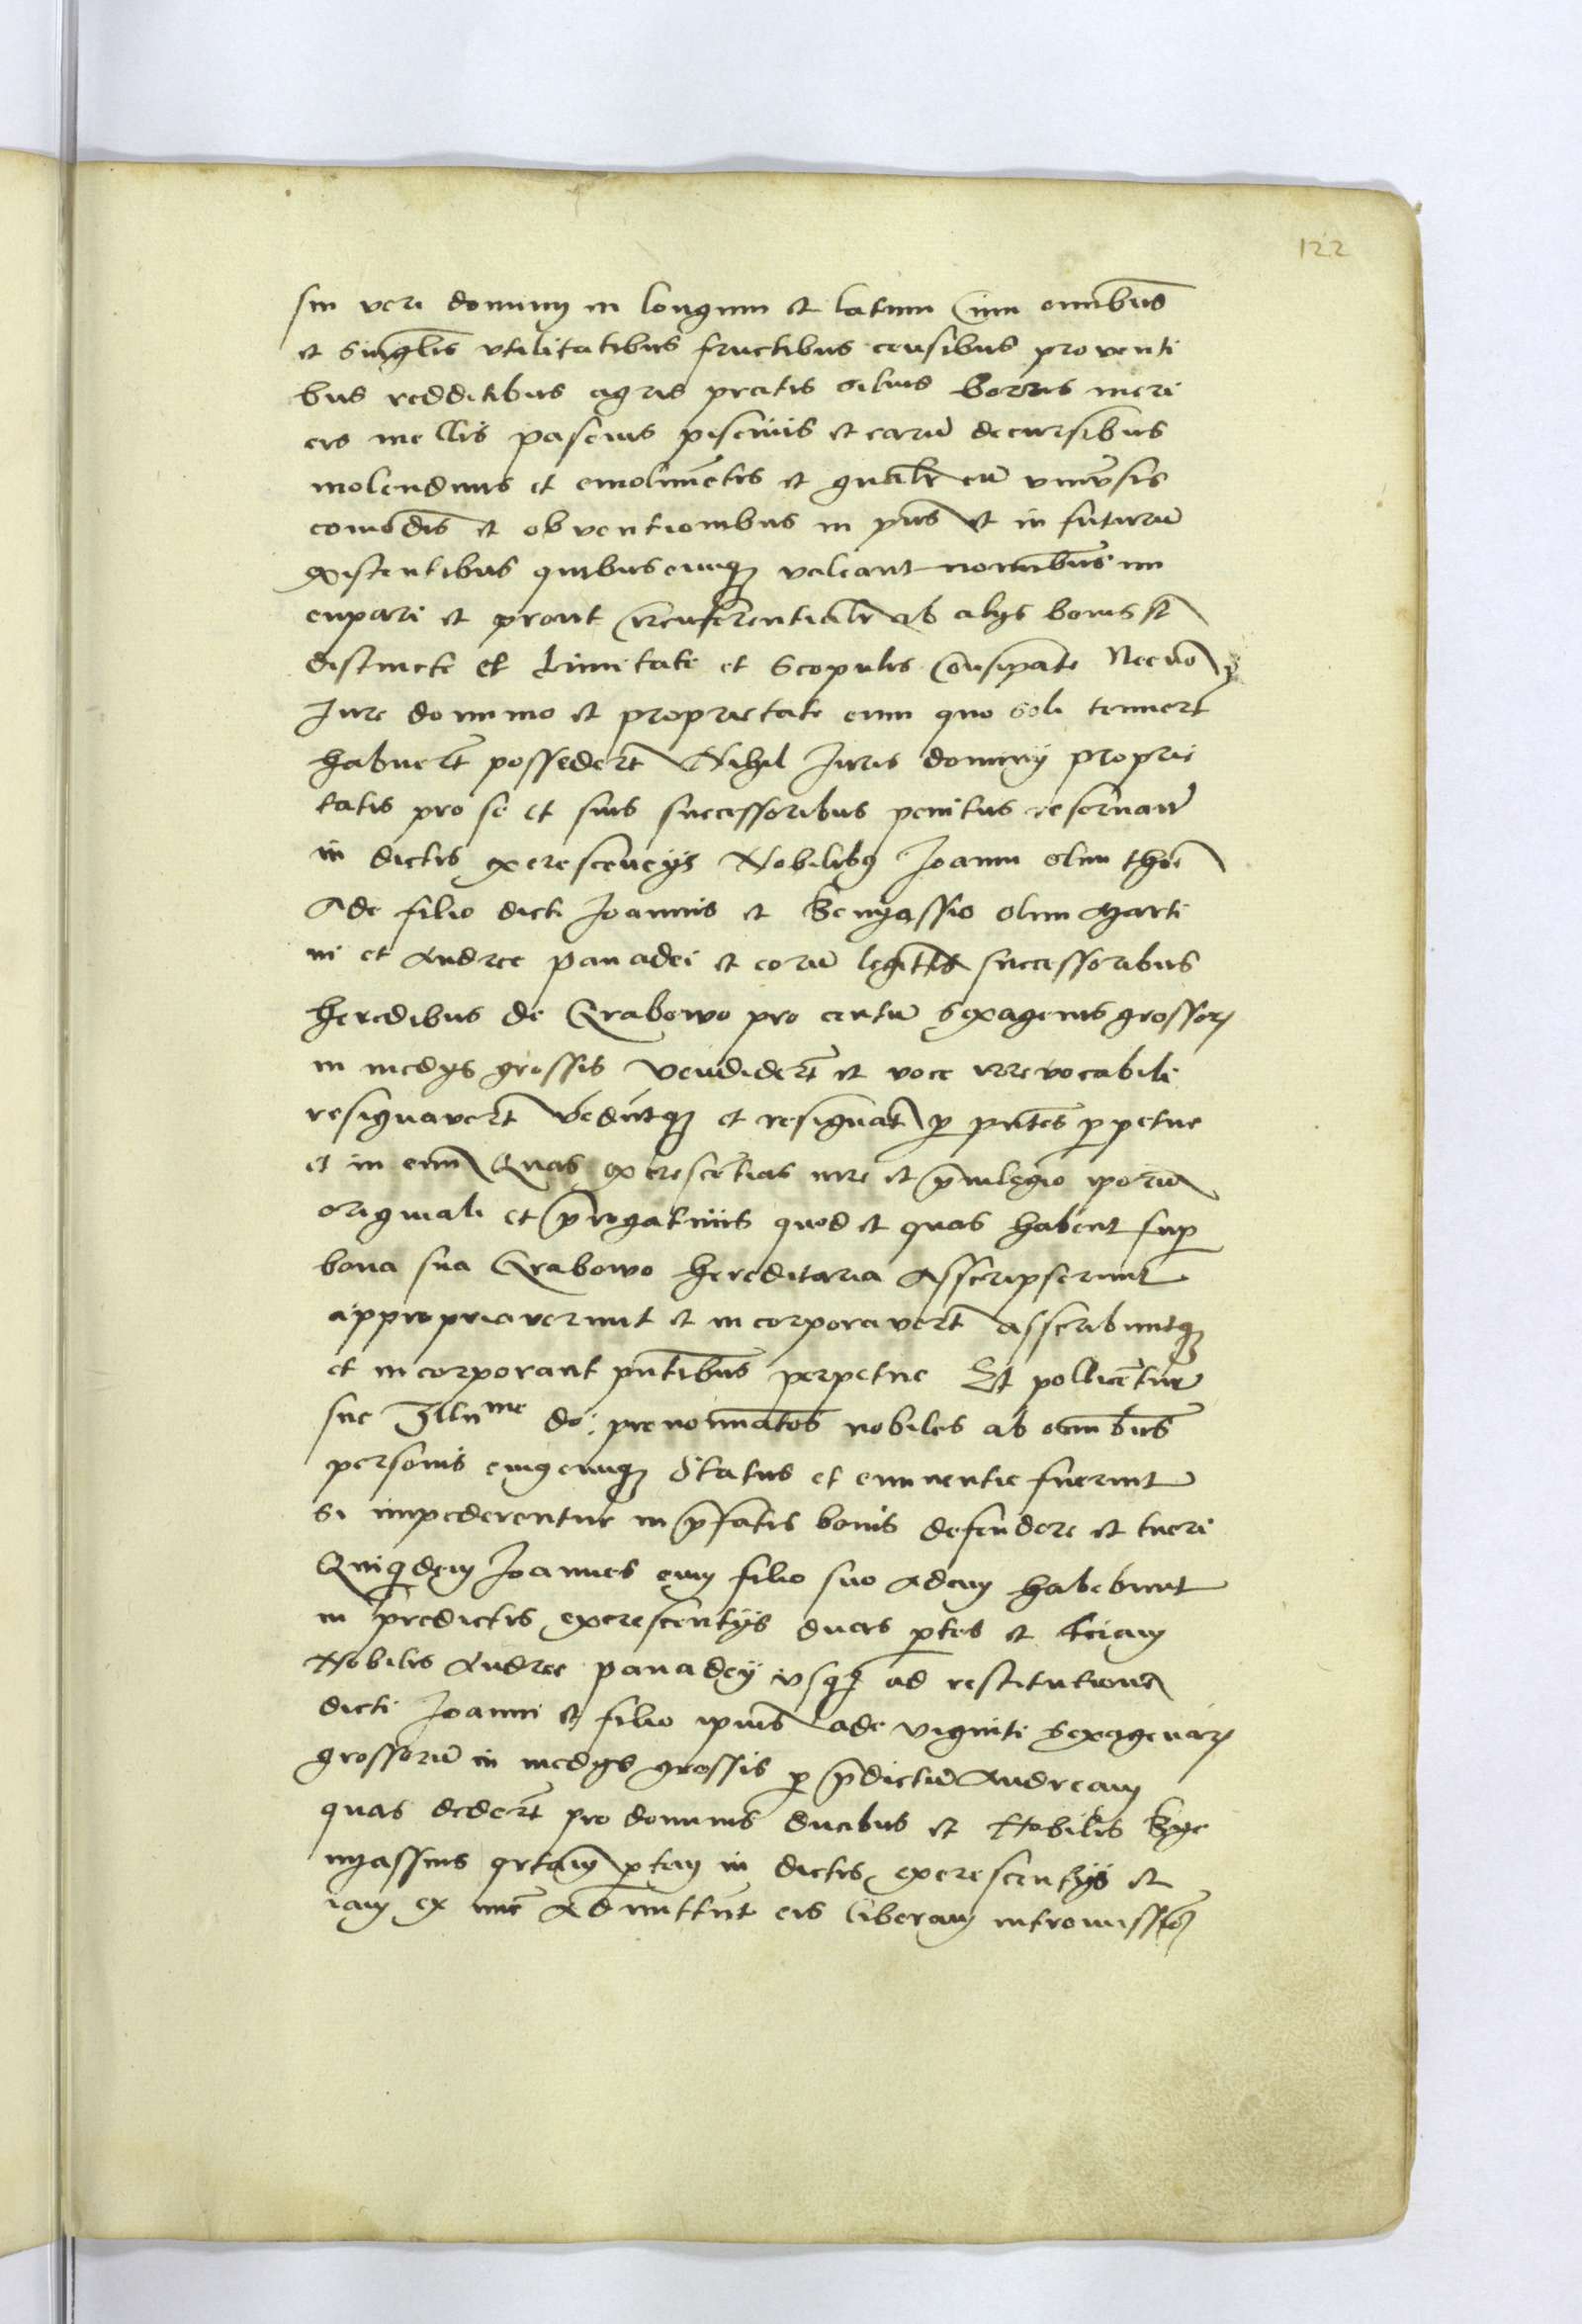 122
sui veri dominij in longum et latum Cum omnibus
et singlis vtilitatibus fructibus censibus proventi
bus redditibus agris pratis siluis borris meri
cis mellis pascuis piscinis et earũ decursibus
molendinis et emolimẽtis et gnalr cũ vniṽsis
comodis et obventionibus in pñs et in futurũ
existentibus quibuscunqʒ valeant nominibus nu
cupari et prout circuferentialr ab alijs bonis st
distincte et limitate et Scopulis Consipate Necno
Jure dominio et proprietate cum quo soli tenuert
habuert possedert Nihil Juris dominij proprie
tatis pro se et suis successoribus penitus reservarũ
in dictis excrescencijs Nobilibʒ Joanni olim thoe
Ade filio dicti Joannis et Benyassio olim Marti
ni et Andree panadei et eorũ legittis successoribus
heredibus de Grabowo pro centũ sexagenis grossorʒ
in medijs grossis Vendidert et voce irrevocabili
resignavert Vẽdũtqʒ et resignãt p pñtes ppetue
et in evũ Quas excrescẽtias iure et pvilegio iporũ
originali et progativis quod et quas habent sup
bona sua Grabowo hereditaria Asscripserunt
appropriaverunt et incorporavert asscribuntqʒ
et incorporant pñtibus perpetue Et pollicẽtur
sue Illu^me do: prenominatos nobiles ab omibus
personis cuiʒcunqʒ Status et eminentie fuerint
si impederentur in pfatis bonis defendere et tueri
Quiqdem Joannes cum filio suo Adam habebunt
in predictis excrescentijs duas ptes et tciam
Nobilis Andree panadey vsqʒ ad restitutione
dicti Joanni et filio ipius ade viginti sexagenarʒ
grossorũ in medijs grossis p pdictũ Andream
quas dedert pro dominis ducibus et Nobilis Bye
nyassius qrtam ptem in dictis excrescentijs et
iam ex nũc Admittũt eis liberam intromissioẽ